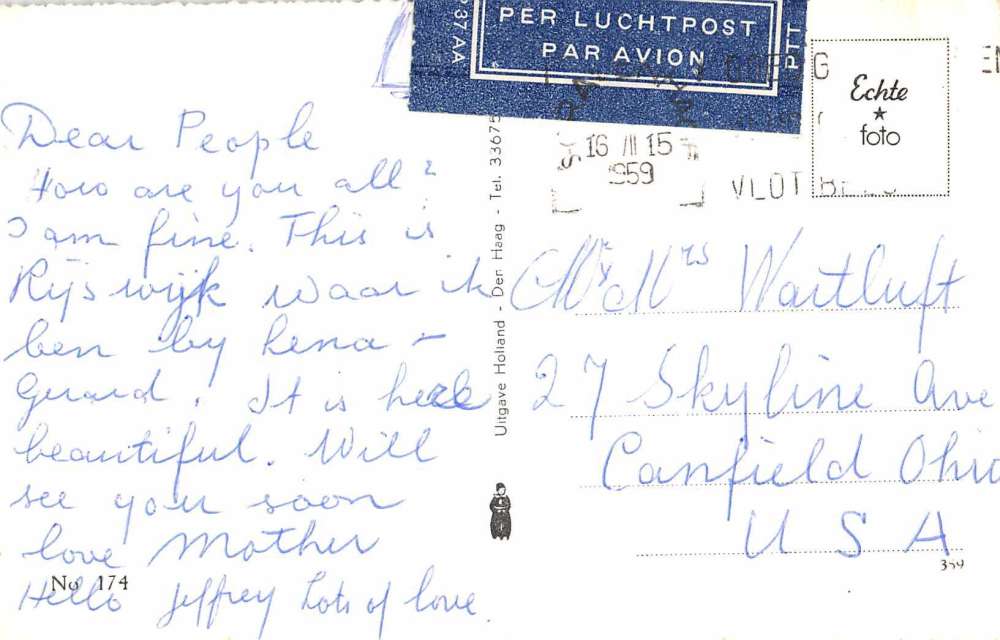 PER LUCHTPOST
PAR AVION
37 AA
PTT
Echte
★
foto
16 III 15
1959
VLOT
Dear People
How are you all?
I am fine. This is
Rijswijk waar ik
ben by Rena -
Gerard. It is heel
beautiful. Will
see you soon
love Mother
Hello Jeffrey Lots of love.
No 174
Uitgave Holland - Den Haag - Tel. 33675
Mr & Mrs Waitluft
27 Skyline Ave
Canfield Ohio
U S A
359